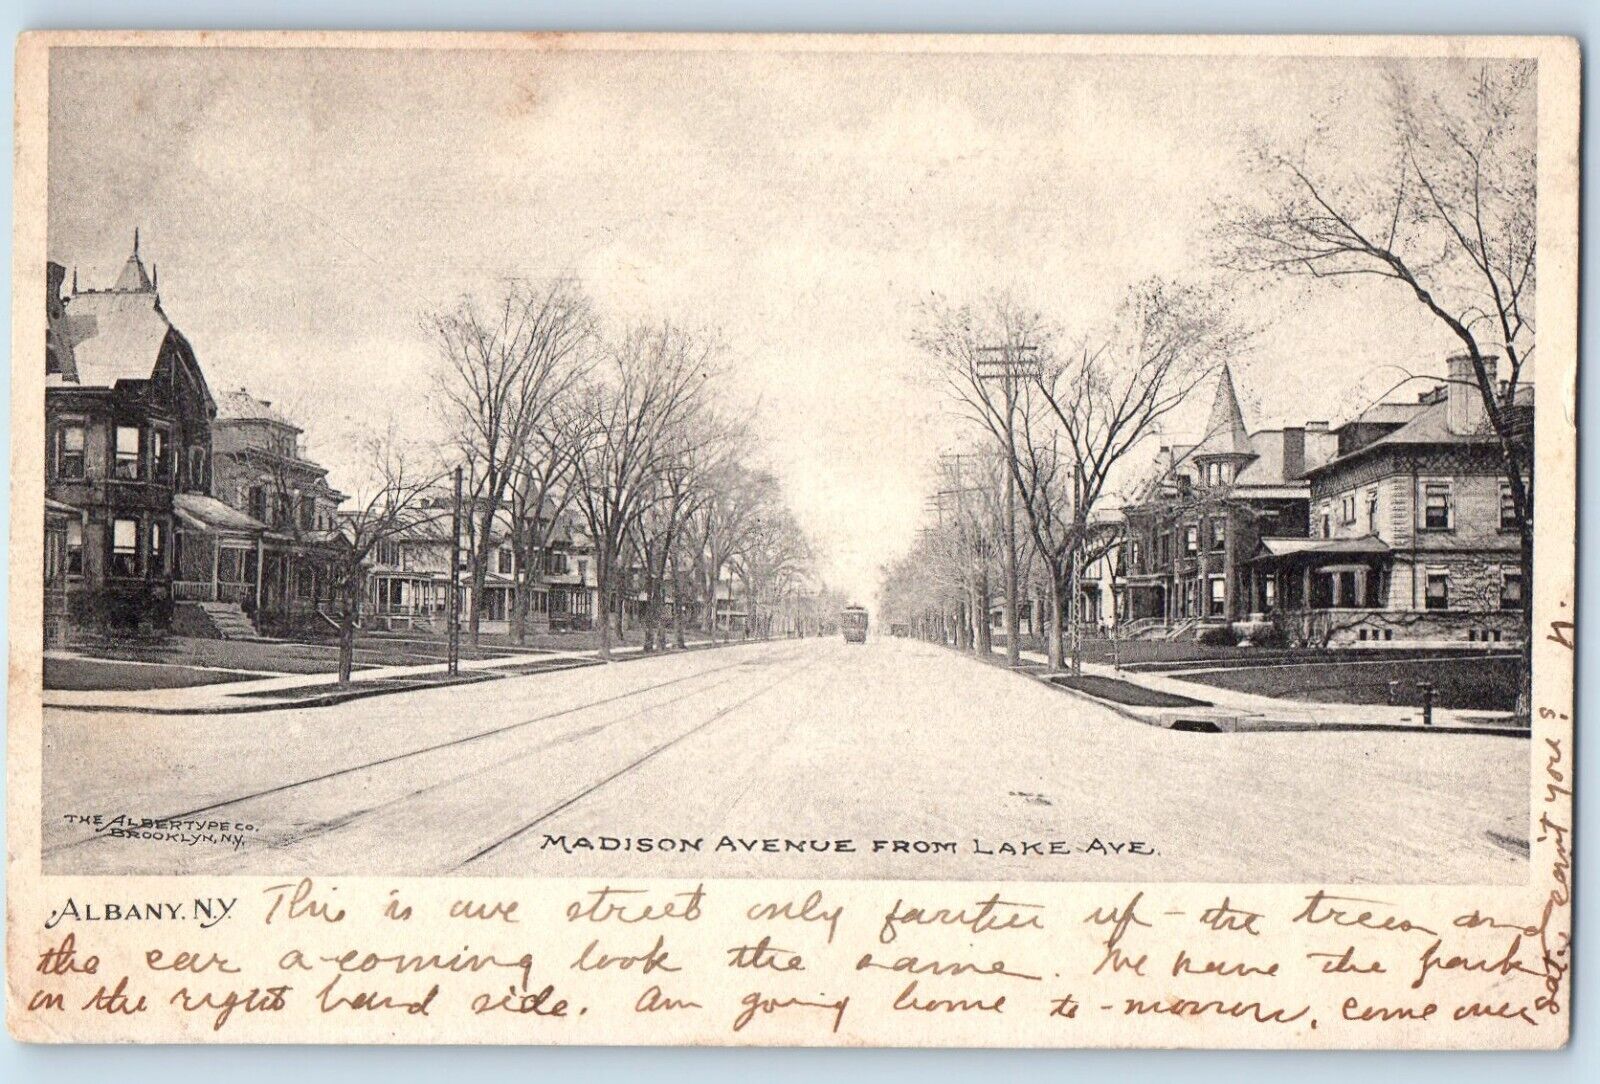 THE ALBERTYPE CO.
BROOKLYN, N.Y.
MADISON AVENUE FROM LAKE AVE.
ALBANY, N.Y. This is our street only farther up - the trees and
the car a-coming look the same. We have the park
on the right hand side. Am going home to-morrow, come over
Sat. can't you? N.